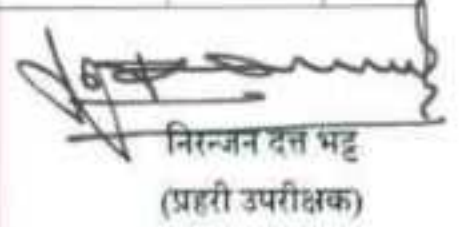 निरन्जन दत्त भट्ट
(प्रहरी उपरीक्षक)